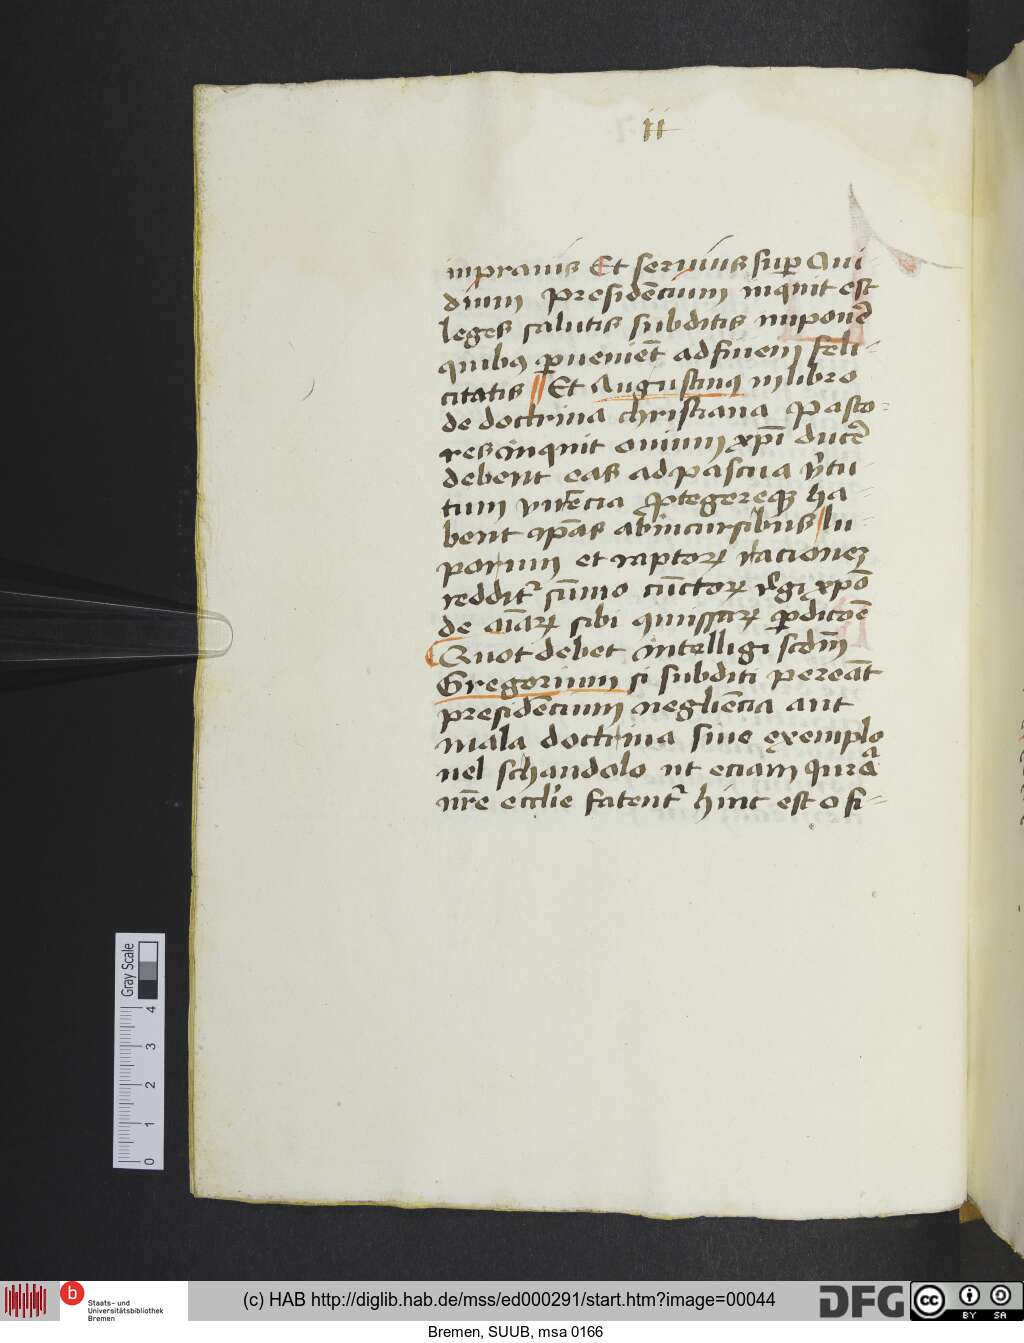 ii
inpranis Et seruius sup Oui-
dium presidēcium inquit est
leges salutis subditis inponē
quibꝰ ꝑueniēt ad finem feli-
citatis Et Augustinꝰ in libro
de doctrina christiana Pasto-
res inquit ouium xp̄i ducē
debent eas ad pascua v̓tu-
tum virēcia ꝓtegereqꝫ ha-
bent ip̄as ab incursibus lu-
porum et raptoꝝ racionem
reddit᷑ sūmo cūctoꝝ regi xp̄o
de aīaꝝ sibi ꝑdicōe
Quot debet intelligi scdm̄
Gregorium si subditi pereāt
presidēcium negliēcia aut
mala doctrina siue exemplo
uel schandolo ut eciam iura
nr̄e eccl̄ie fatent᷑ hinc est o fi-
Gray Scale
4
3
2
1
0
b
Staats- und
Universitätsbibliothek
Bremen
(c) HAB http://diglib.hab.de/mss/ed000291/start.htm?image=00044
DFG
cc
BY SA
Bremen, SUUB, msa 0166